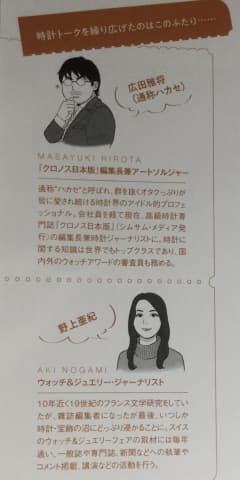 時計トークを繰り広げたのはこのふたり……
広田雅将
(通称ハカセ)
MASAYUKI HIROTA
『クロノス日本版』編集長兼アートソルジャー
通称“ハカセ”と呼ばれ、群を抜くオタクっぷりが
皆に愛され続ける時計界のアイドル的プロフェ
ッショナル。会社員を経て現在、高級時計専
門誌『クロノス日本版』(シムサム・メディア発
行)の編集長兼時計ジャーナリストに。時計に
関する知識は世界でもトップクラスであり、国
内外のウォッチアワードの審査員も務める。
野上亜紀
AKI NOGAMI
ウォッチ&ジュエリー・ジャーナリスト
10年近く19世紀のフランス文学研究をしてい
たが、雑誌編集者になったが最後、いつしか
時計・宝飾の沼にどっぷり浸かることに。スイス
のウォッチ&ジュエリーフェアの取材には毎年
通い、一般誌や専門誌、新聞などへの執筆や
コメント掲載、講演などの活動を行う。